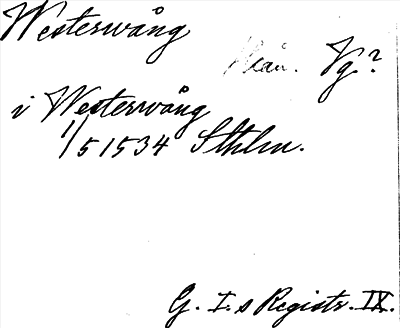 Westerwång
Vg?
i Westerwång
1/5 1534 Sthlm.
G. I. s Registr. IX.